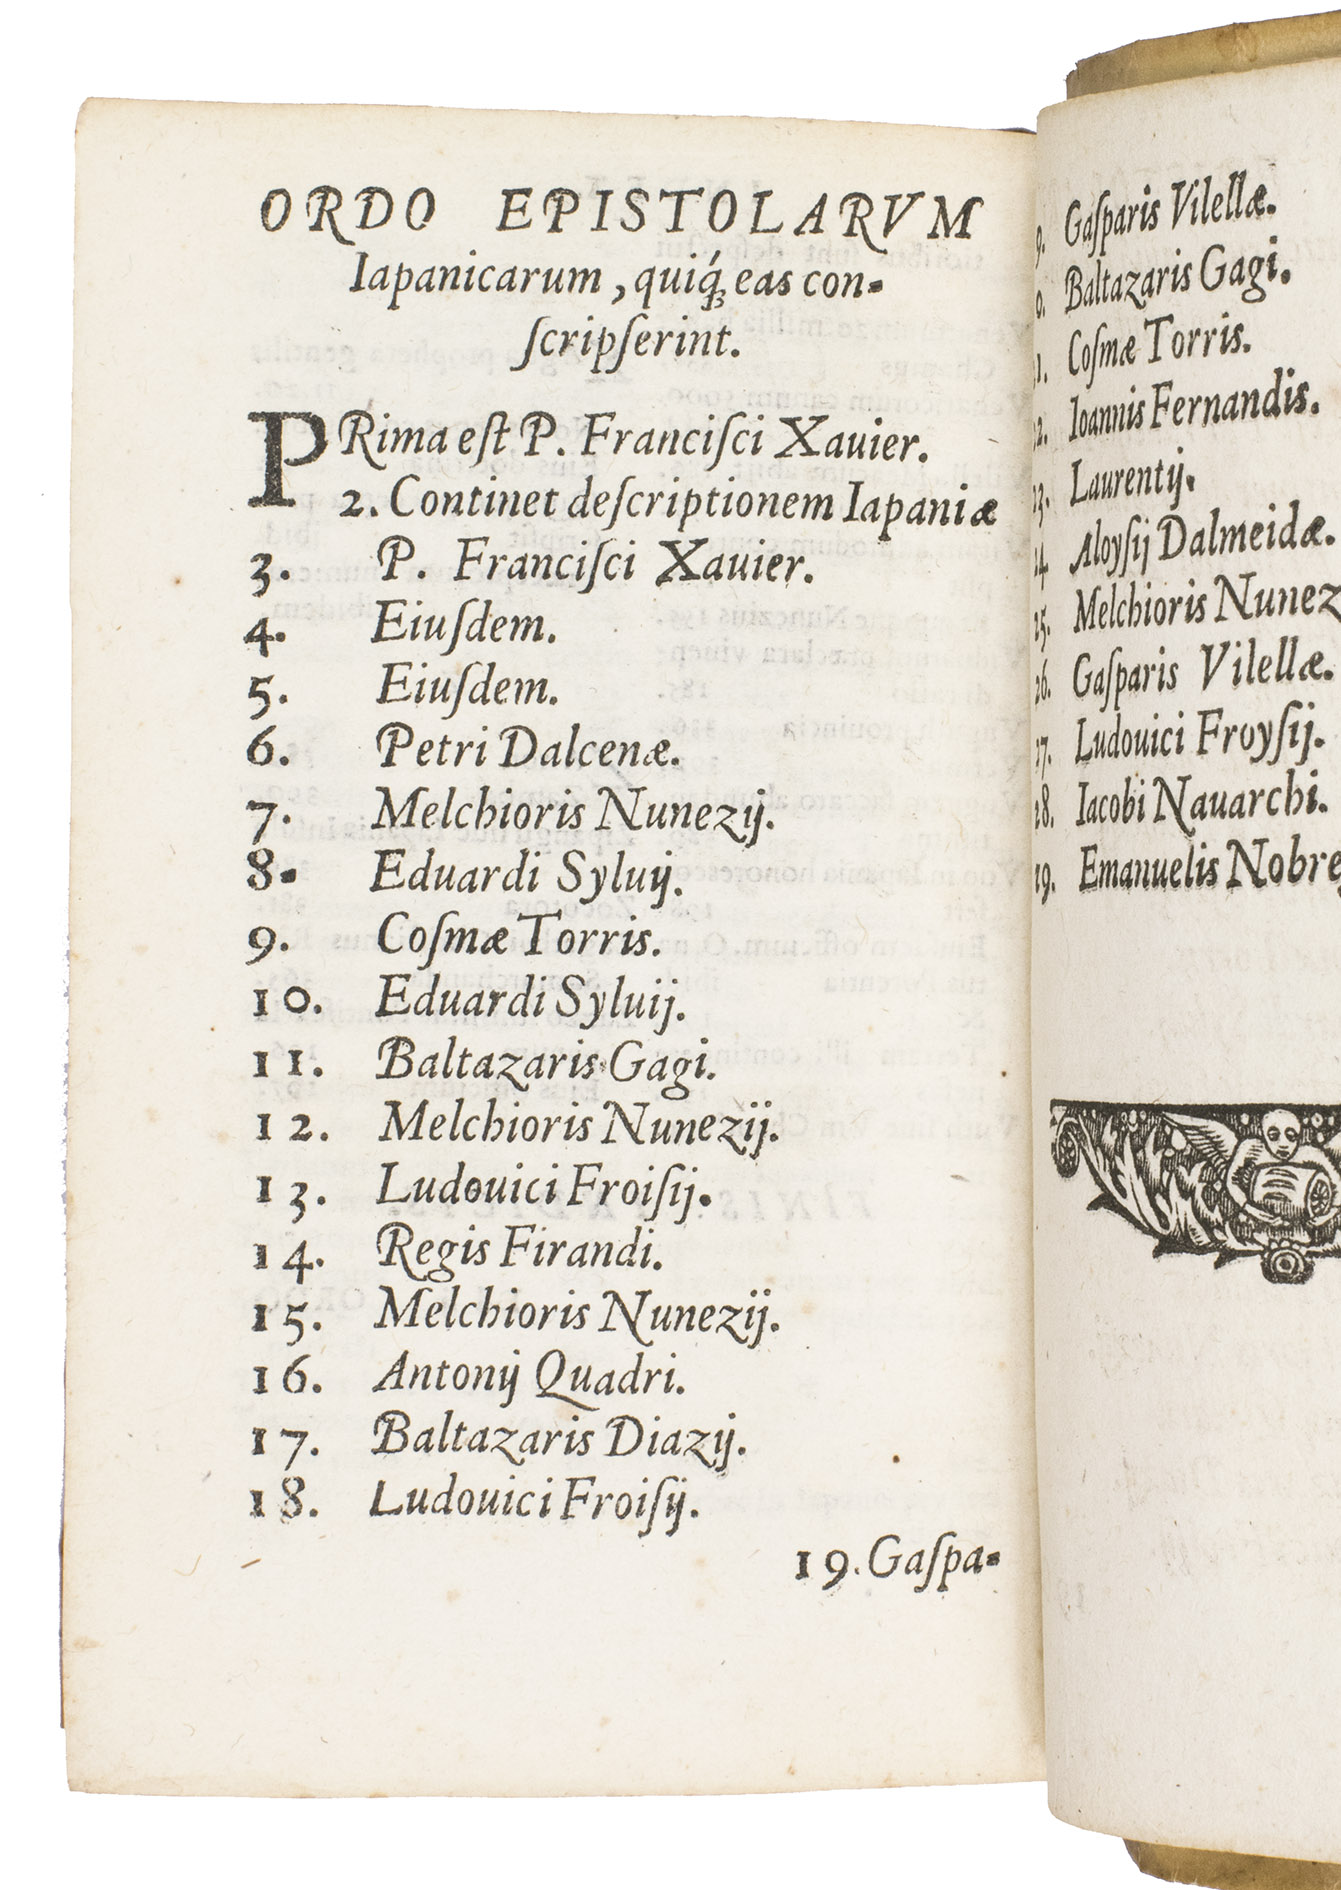 ORDO EPISTOLARVM
Iapanicarum, quiq́; eas con-
ſcripſerint.
PRima eſt P. Franciſci Xauier.
2. Continet deſcriptionem Iapaniæ
3. P. Franciſci Xauier.
4. Eiuſdem.
5. Eiuſdem.
6. Petri Dalcenæ.
7. Melchioris Nunezij.
8. Eduardi Syluij.
9. Coſmæ Torris.
10. Eduardi Syluij.
11. Baltazaris Gagi.
12. Melchioris Nunezij.
13. Ludouici Froiſij.
14. Regis Firandi.
15. Melchioris Nunezij.
16. Antonij Quadri.
17. Baltazaris Diazij.
18. Ludouici Froiſij.
19. Gaſpa-
9. Gaſparis Vilellæ.
0. Baltazaris Gagi.
21. Coſmæ Torris.
22. Ioannis Fernandis.
23. Laurentij.
24 Aloyſij Dalmeidæ.
25. Melchioris Nunez
26. Gaſparis Vilellæ.
27. Ludouici Froyſij.
28. Iacobi Nauarchi.
29. Emanuelis Nobre